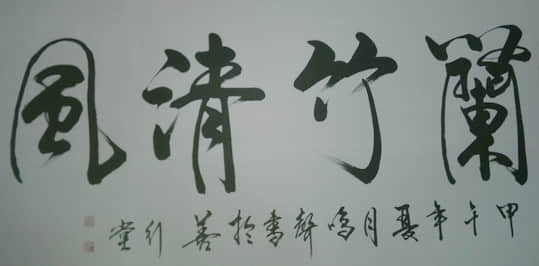 蘭竹清風
甲午年夏月鸣聲書於善行堂